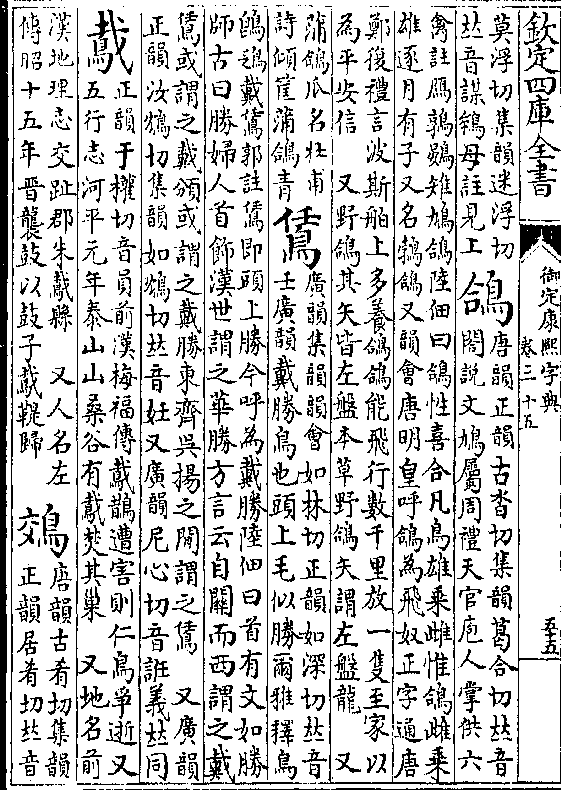 欽定四庫全書
御定康熙字典
卷三十五
五十五
莫浮切集韻迷浮切
𠀤音謀鴾母註見上
鴿
唐韻正韻古沓切集韻葛合切𠀤音
閤說文鳩屬周禮天官庖人掌供六
禽註鴈鶉鷃雉鳩鴿陸佃曰鴿性喜合凡鳥雄乗雌惟鴿雌乗
雄逐月有子又名鵓鴿又韻會唐明皇呼鴿為飛奴正字通唐
鄭復禮言波斯舶上多養鴿鴿能飛行數千里放一隻至家以
為平安信 又野鴿其矢皆左盤本草野鴿矢謂左盤龍 又
蒲鴿瓜名杜甫
詩傾筐蒲鴿青
鵀
廣韻集韻韻會如林切正韻如深切𠀤音
壬廣韻戴勝鳥也頭上毛似勝爾雅釋鳥
鵖鴔戴鵀郭註鵀即頭上勝今呼為戴勝陸佃曰首有文如勝
師古曰勝婦人首飾漢世謂之華勝方言云自關而西謂之戴
鵀或謂之戴頒或謂之戴勝東齊吳揚之閒謂之鵀 又廣韻
正韻汝鴆切集韻如鴆切𠀤音妊又廣韻尼心切音誑義𠀤同
䳒
正韻于權切音員前漢梅福傳䳒鵲遭害則仁鳥爭逝又
五行志河平元年泰山山桑谷有䳒焚其巢 又地名前
漢地理志交趾郡朱䳒縣 又人名左
傳昭十五年晉襲鼓以鼓子䳒鞮歸
鵁
唐韻古肴切集韻
正韻居肴切𠀤音